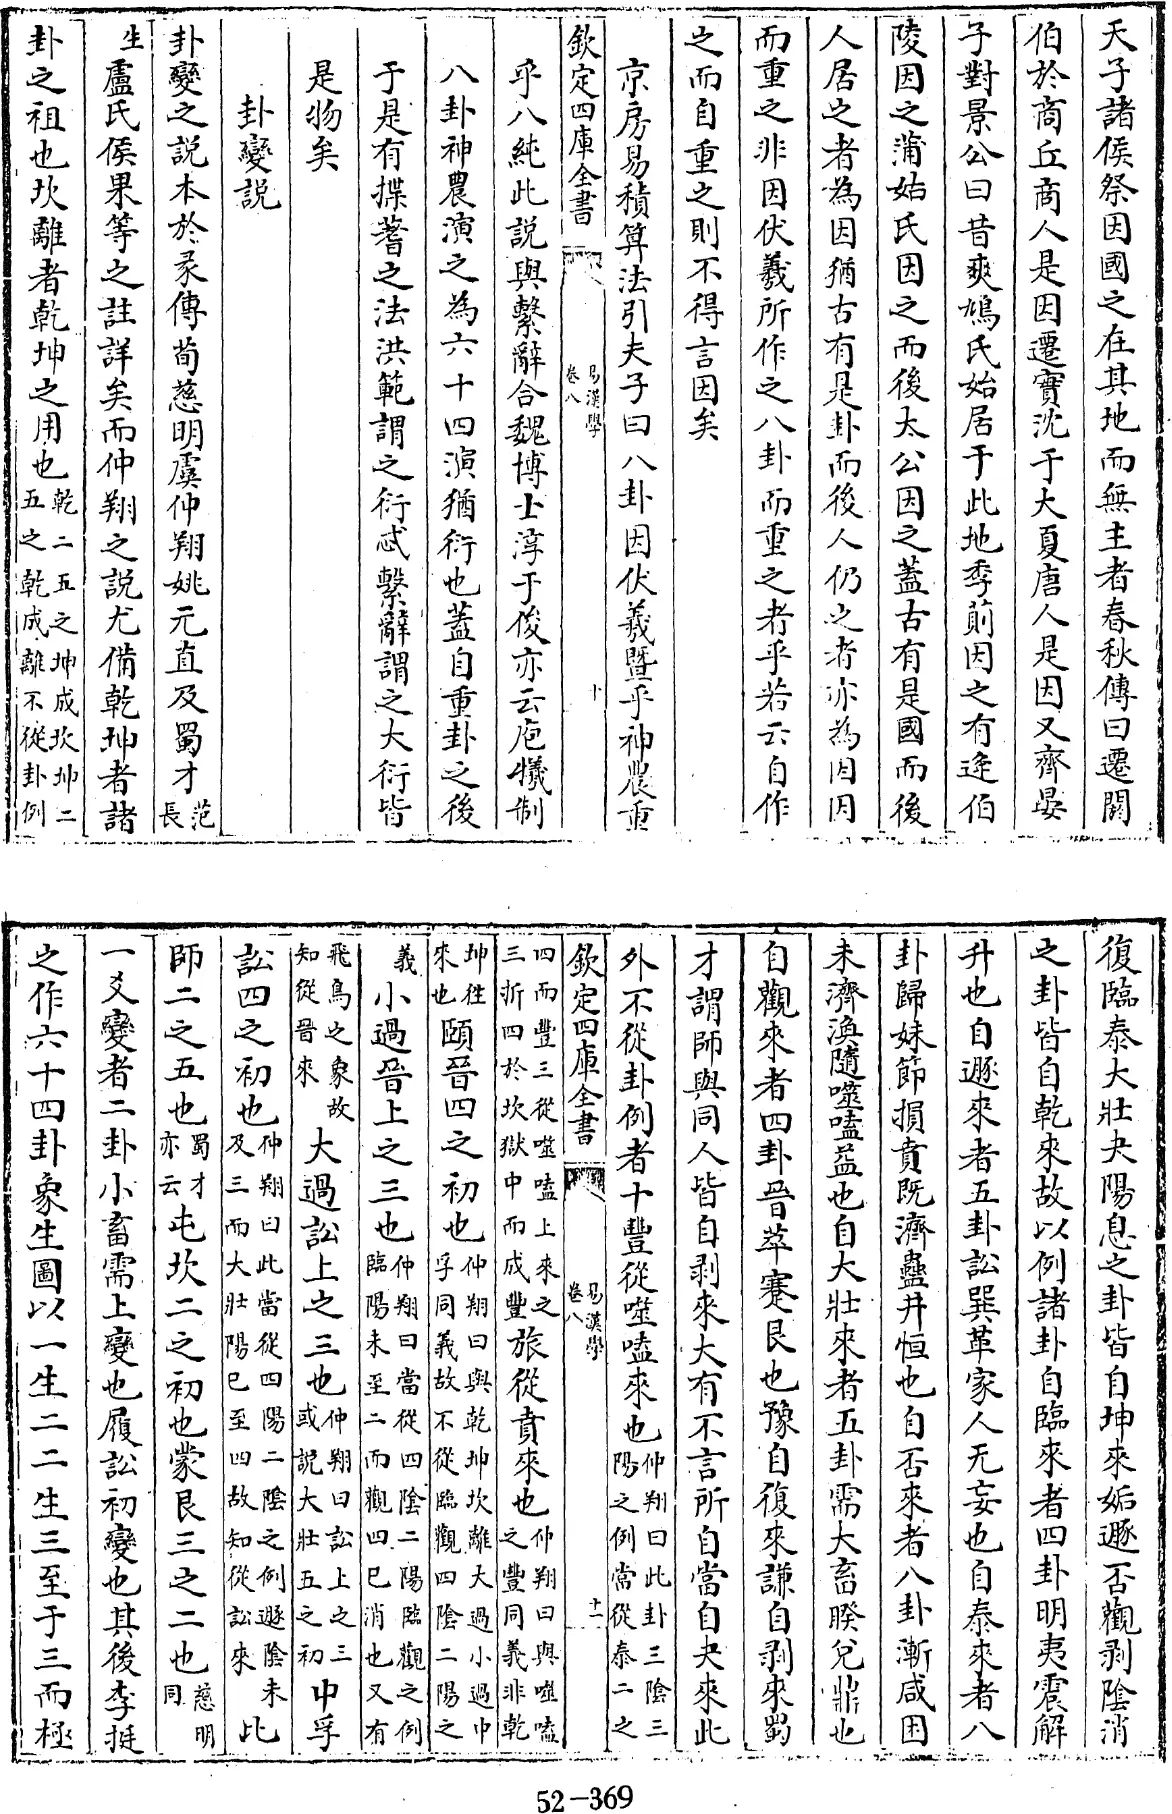 天子諸侯祭因國之在其地而無主者春秋傳曰遷閼
伯於商丘商人是因遷實沈于大夏唐人是因又齊晏
子對景公曰昔爽鳩氏始居于此地季萴因之有逄伯
陵因之蒲姑氏因之而後太公因之蓋古有是國而後
人居之者為因猶古有是卦而後人仍之者亦為因因
而重之非因伏羲所作之八卦而重之者乎若云自作
之而自重之則不得言因矣
京房易積算法引夫子曰八卦因伏羲暨乎神農重
欽定四庫全書
易漢學
卷八
十
乎八純此說與繫辭合魏博士淳于俊亦云庖犧制
八卦神農演之為六十四演猶衍也蓋自重卦之後
于是有揲蓍之法洪範謂之衍忒繫辭謂之大衍皆
是物矣
卦變說
卦變之說本於彖傳荀慈明虞仲翔姚元直及蜀才范長
生盧氏侯果等之註詳矣而仲翔之說尤備乾坤者諸
卦之祖也坎離者乾坤之用也乾二五之坤成坎坤二五之乾成離不從卦例
復臨泰大壯夬陽息之卦皆自坤來姤遯否觀剥陰消
之卦皆自乾來故以例諸卦自臨來者四卦明夷震解
升也自遯來者五卦訟巽革家人无妄也自泰來者八
卦歸妹節損賁既濟蠱井恒也自否來者八卦漸咸困
未濟渙隨噬嗑益也自大壯來者五卦需大畜睽兌鼎也
自觀來者四卦晉萃蹇艮也豫自復來謙自剥來蜀
才謂師與同人皆自剥來大有不言所自當自夬來此
外不從卦例者十豐從噬嗑來也仲翔曰此卦三陰三陽之例當從泰二之
欽定四庫全書
易漢學
卷八
十一
四而豐三從噬嗑上來之三折四於坎獄中而成豐旅從賁來也仲翔曰與噬嗑之豐同義非乾
坤往來也頤晉四之初也仲翔曰與乾坤坎離大過小過中孚同義故不從臨觀四陰二陽之
義小過晉上之三也仲翔曰當從四陰二陽臨觀之例臨陽未至二而觀四已消也又有
飛鳥之象故知從晉來大過訟上之三也仲翔曰訟上之三或說大壯五之初中孚
訟四之初也仲翔曰此當從四陽二陰之例遯陰未及三而大壯陽已至四故知從訟來此
師二之五也蜀才亦云屯坎二之初也蒙艮三之二也慈明同
一爻變者二卦小畜需上變也履訟初變也其後李挺
之作六十四卦象生圖以一生二二生三至于三而極
52-369